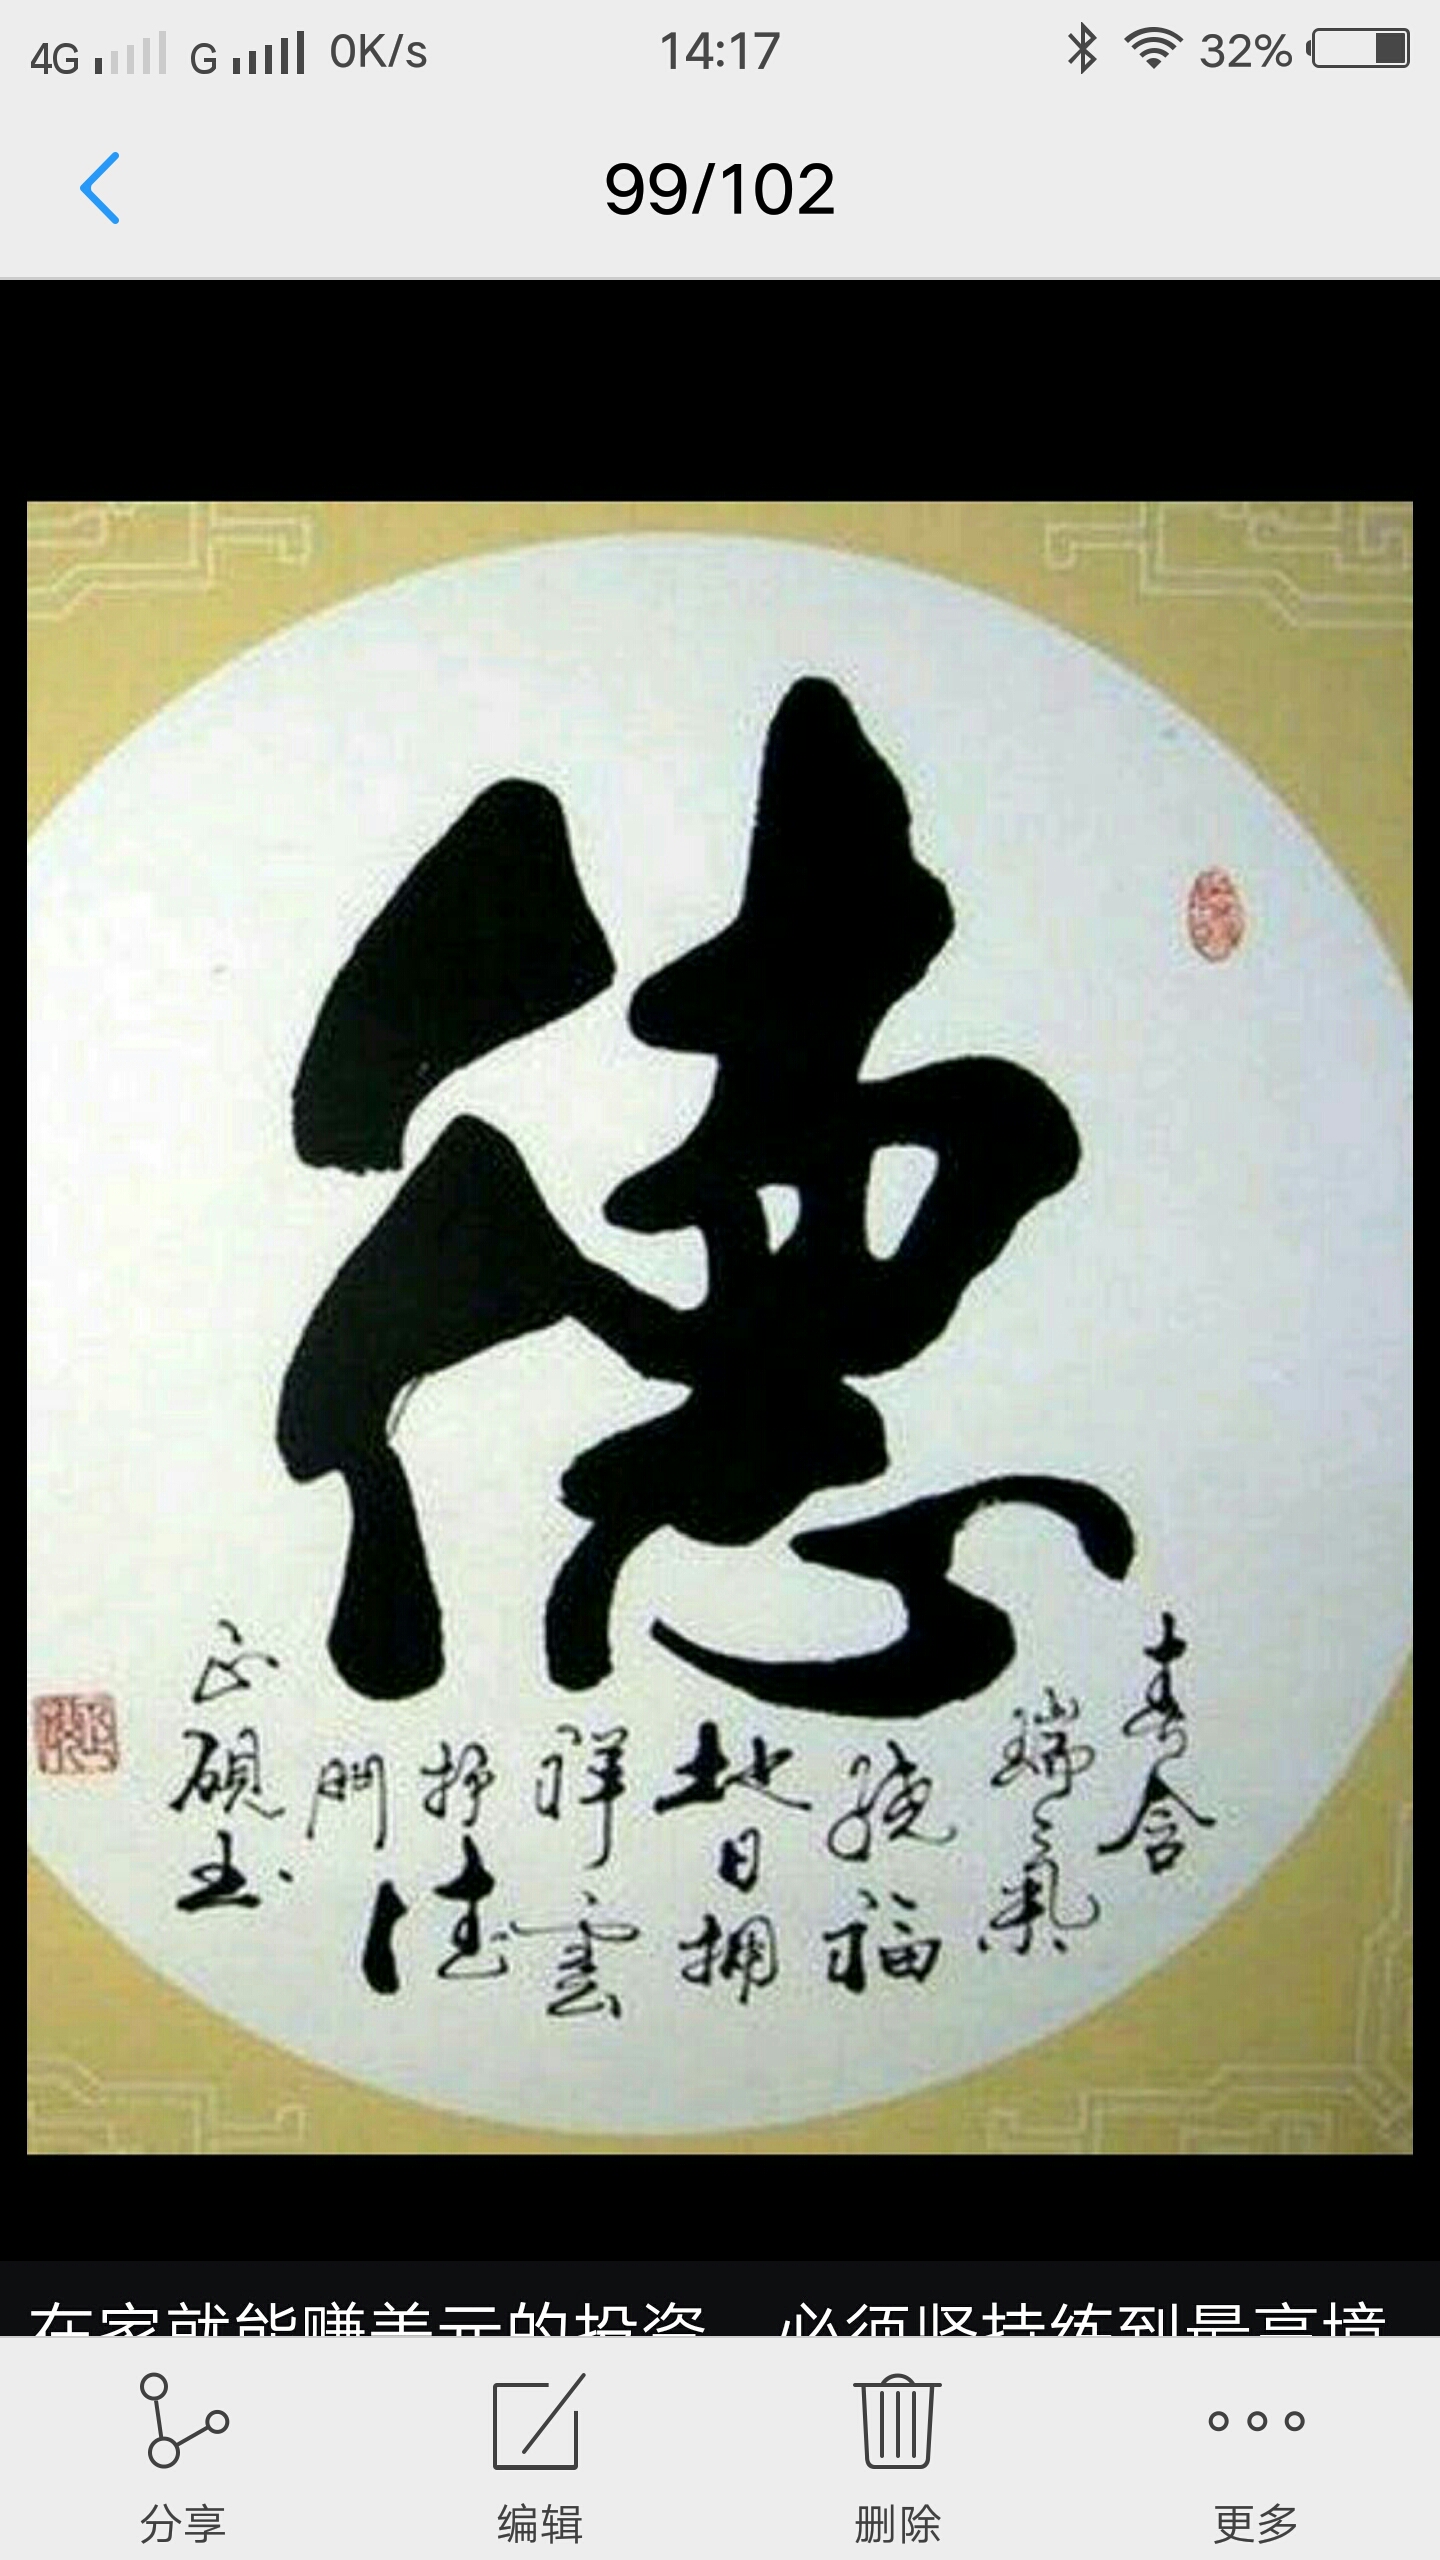 4G G 0K/s 14:17 32%
99/102
德
春含
瑞氣
繞福
地日拥
祥雲
护佳
门
硕玉
在家就能赚美元的投资 必须坚持练到最高境
分享 编辑 删除 更多